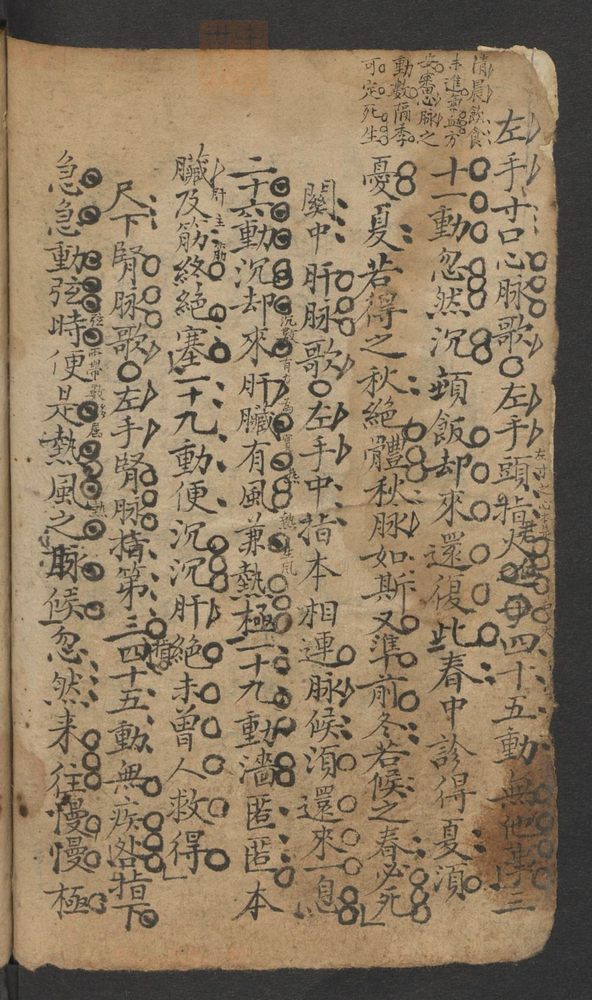 清晨飲食
未進氣血方
安審心脉之
動數隔季
可定死生
左手寸口心脉歌○左手頭指火四十五動無他事三
十一動忽然沉頓飯却來還復此春中診得夏須
憂夏若得之秋絕體秋脉如斯又準前冬若候之春必死
關中肝脉歌○左手中指木相連脉候須還來一息
二十六動沉却來肝臟有風兼熱極三十九動濇匿匿本
臟及筋終絕塞一十九動便沉沉肝絕未曾人救得
肝主筋
尺下腎脉歌○左手腎脉指第三四十五動無疾咎指下
急急動弦時便是熱風之脉候忽然来往慢慢極